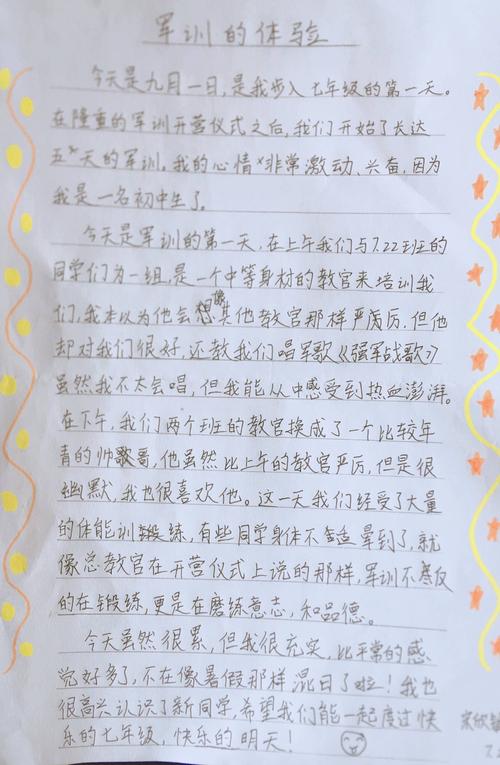 军训的体验
今天是九月一日,是我步入七年级的第一天。
在隆重的军训开营仪式之后,我们开始了长达
五天的军训。我的心情非常激动、兴奋,因为
我是一名初中生了。
今天是军训的第一天,在上午我们与7.22班的
同学们为一组,是一个中等身材的教官来培训我
们,我本以为他会像其他教官那样严厉,但他
却对我们很好,还教我们唱军歌《强军战歌》
虽然我不太会唱,但我能从中感受到热血澎湃。
在下午,我们两个班的教官换成了一个比较年
青的帅歌哥,他虽然比上午的教官严厉,但是很
幽默,我也很喜欢他。这一天我们经受了大量
的体能训锻练,有些同学身体不适晕到了,就
像总教官在开营仪式上说的那样,军训不仅仅
的在锻練,更是在磨练意志,和品德。
今天虽然很累,但我很充实,比平常的感
觉好多了,不在像暑假那样混日了啦!我也
很高兴认识了新同学,希望我们能一起度过快
乐的七年级,快乐的明天!